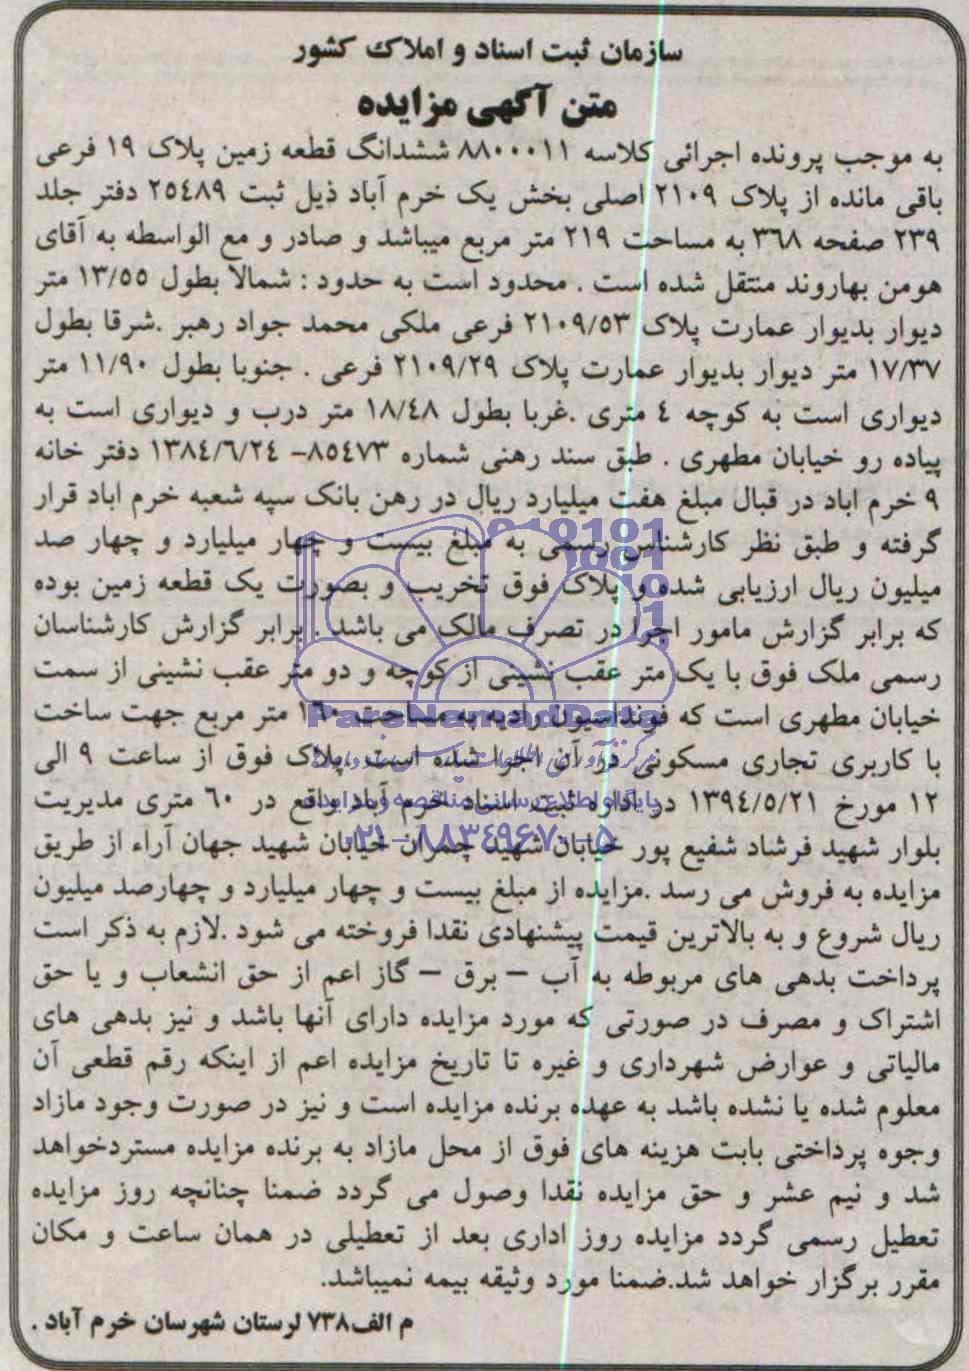 سازمان ثبت اسناد و املاک کشور
متن آگهی مزایده
به موجب پرونده اجرائی کلاسه ۸۸۰۰۰۱۱ ششدانگ قطعه زمین پلاک ۱۹ فرعی
باقی مانده از پلاک ۲۱۰۹ اصلی بخش یک خرم آباد ذیل ثبت ۲۵۴۸۹ دفتر جلد
۲۳۹ صفحه ۳۶۸ به مساحت ۲۱۹ متر مربع میباشد و صادر و مع الواسطه به آقای
هومن بهاروند منتقل شده است . محدود است به حدود : شمالا بطول ۱۳/۵۵ متر
دیوار بدیوار عمارت پلاک ۲۱۰۹/۵۳ فرعی ملکی محمد جواد رهبر .شرقا بطول
۱۷/۳۷ متر دیوار بدیوار عمارت پلاک ۲۱۰۹/۲۹ فرعی . جنوبا بطول ۱۱/۹۰ متر
دیواری است به کوچه ۴ متری .غربا بطول ۱۸/۴۸ متر درب و دیواری است به
پیاده رو خیابان مطهری . طبق سند رهنی شماره ۸۵۴۷۳- ۱۳۸۴/۶/۲۴ دفتر خانه
۹ خرم اباد در قبال مبلغ هفت میلیارد ریال در رهن بانک سپه شعبه خرم اباد قرار
گرفته و طبق نظر کارشناس رسمی به مبلغ بیست و چهار میلیارد و چهار صد
میلیون ریال ارزیابی شده و پلاک فوق تخریب و بصورت یک قطعه زمین بوده
که برابر گزارش مامور اجرا در تصرف مالک می باشد . برابر گزارش کارشناسان
رسمی ملک فوق با یک متر عقب نشینی از کوچه و دو متر عقب نشینی از سمت
خیابان مطهری است که فونداسیون رادیه به مساحت ۱۶۰ متر مربع جهت ساخت
با کاربری تجاری مسکونی در آن اجرا شده است .پلاک فوق از ساعت ۹ الی
۱۲ مورخ ۱۳۹۴/۵/۲۱ در اداره ثبت اسناد خرم آباد واقع در ۶۰ متری مدیریت
بلوار شهید فرشاد شفیع پور خیابان شهید چمران خیابان شهید جهان آراء از طریق
مزایده به فروش می رسد .مزایده از مبلغ بیست و چهار میلیارد و چهارصد میلیون
ریال شروع و به بالاترین قیمت پیشنهادی نقدا فروخته می شود .لازم به ذکر است
پرداخت بدهی های مربوطه به آب – برق – گاز اعم از حق انشعاب و یا حق
اشتراک و مصرف در صورتی که مورد مزایده دارای آنها باشد و نیز بدهی های
مالیاتی و عوارض شهرداری و غیره تا تاریخ مزایده اعم از اینکه رقم قطعی آن
معلوم شده یا نشده باشد به عهده برنده مزایده است و نیز در صورت وجود مازاد
وجوه پرداختی بابت هزینه های فوق از محل مازاد به برنده مزایده مستردخواهد
شد و نیم عشر و حق مزایده نقدا وصول می گردد ضمنا چنانچه روز مزایده
تعطیل رسمی گردد مزایده روز اداری بعد از تعطیلی در همان ساعت و مکان
مقرر برگزار خواهد شد.ضمنا مورد وثیقه بیمه نمیباشد.
م الف۷۳۸ لرستان شهرسان خرم آباد .
ParsNamadData
پایگاه اطلاع رسانی مناقصه و مزایده
۰۲۱-۸۸۳۴۹۶۷۰-۵